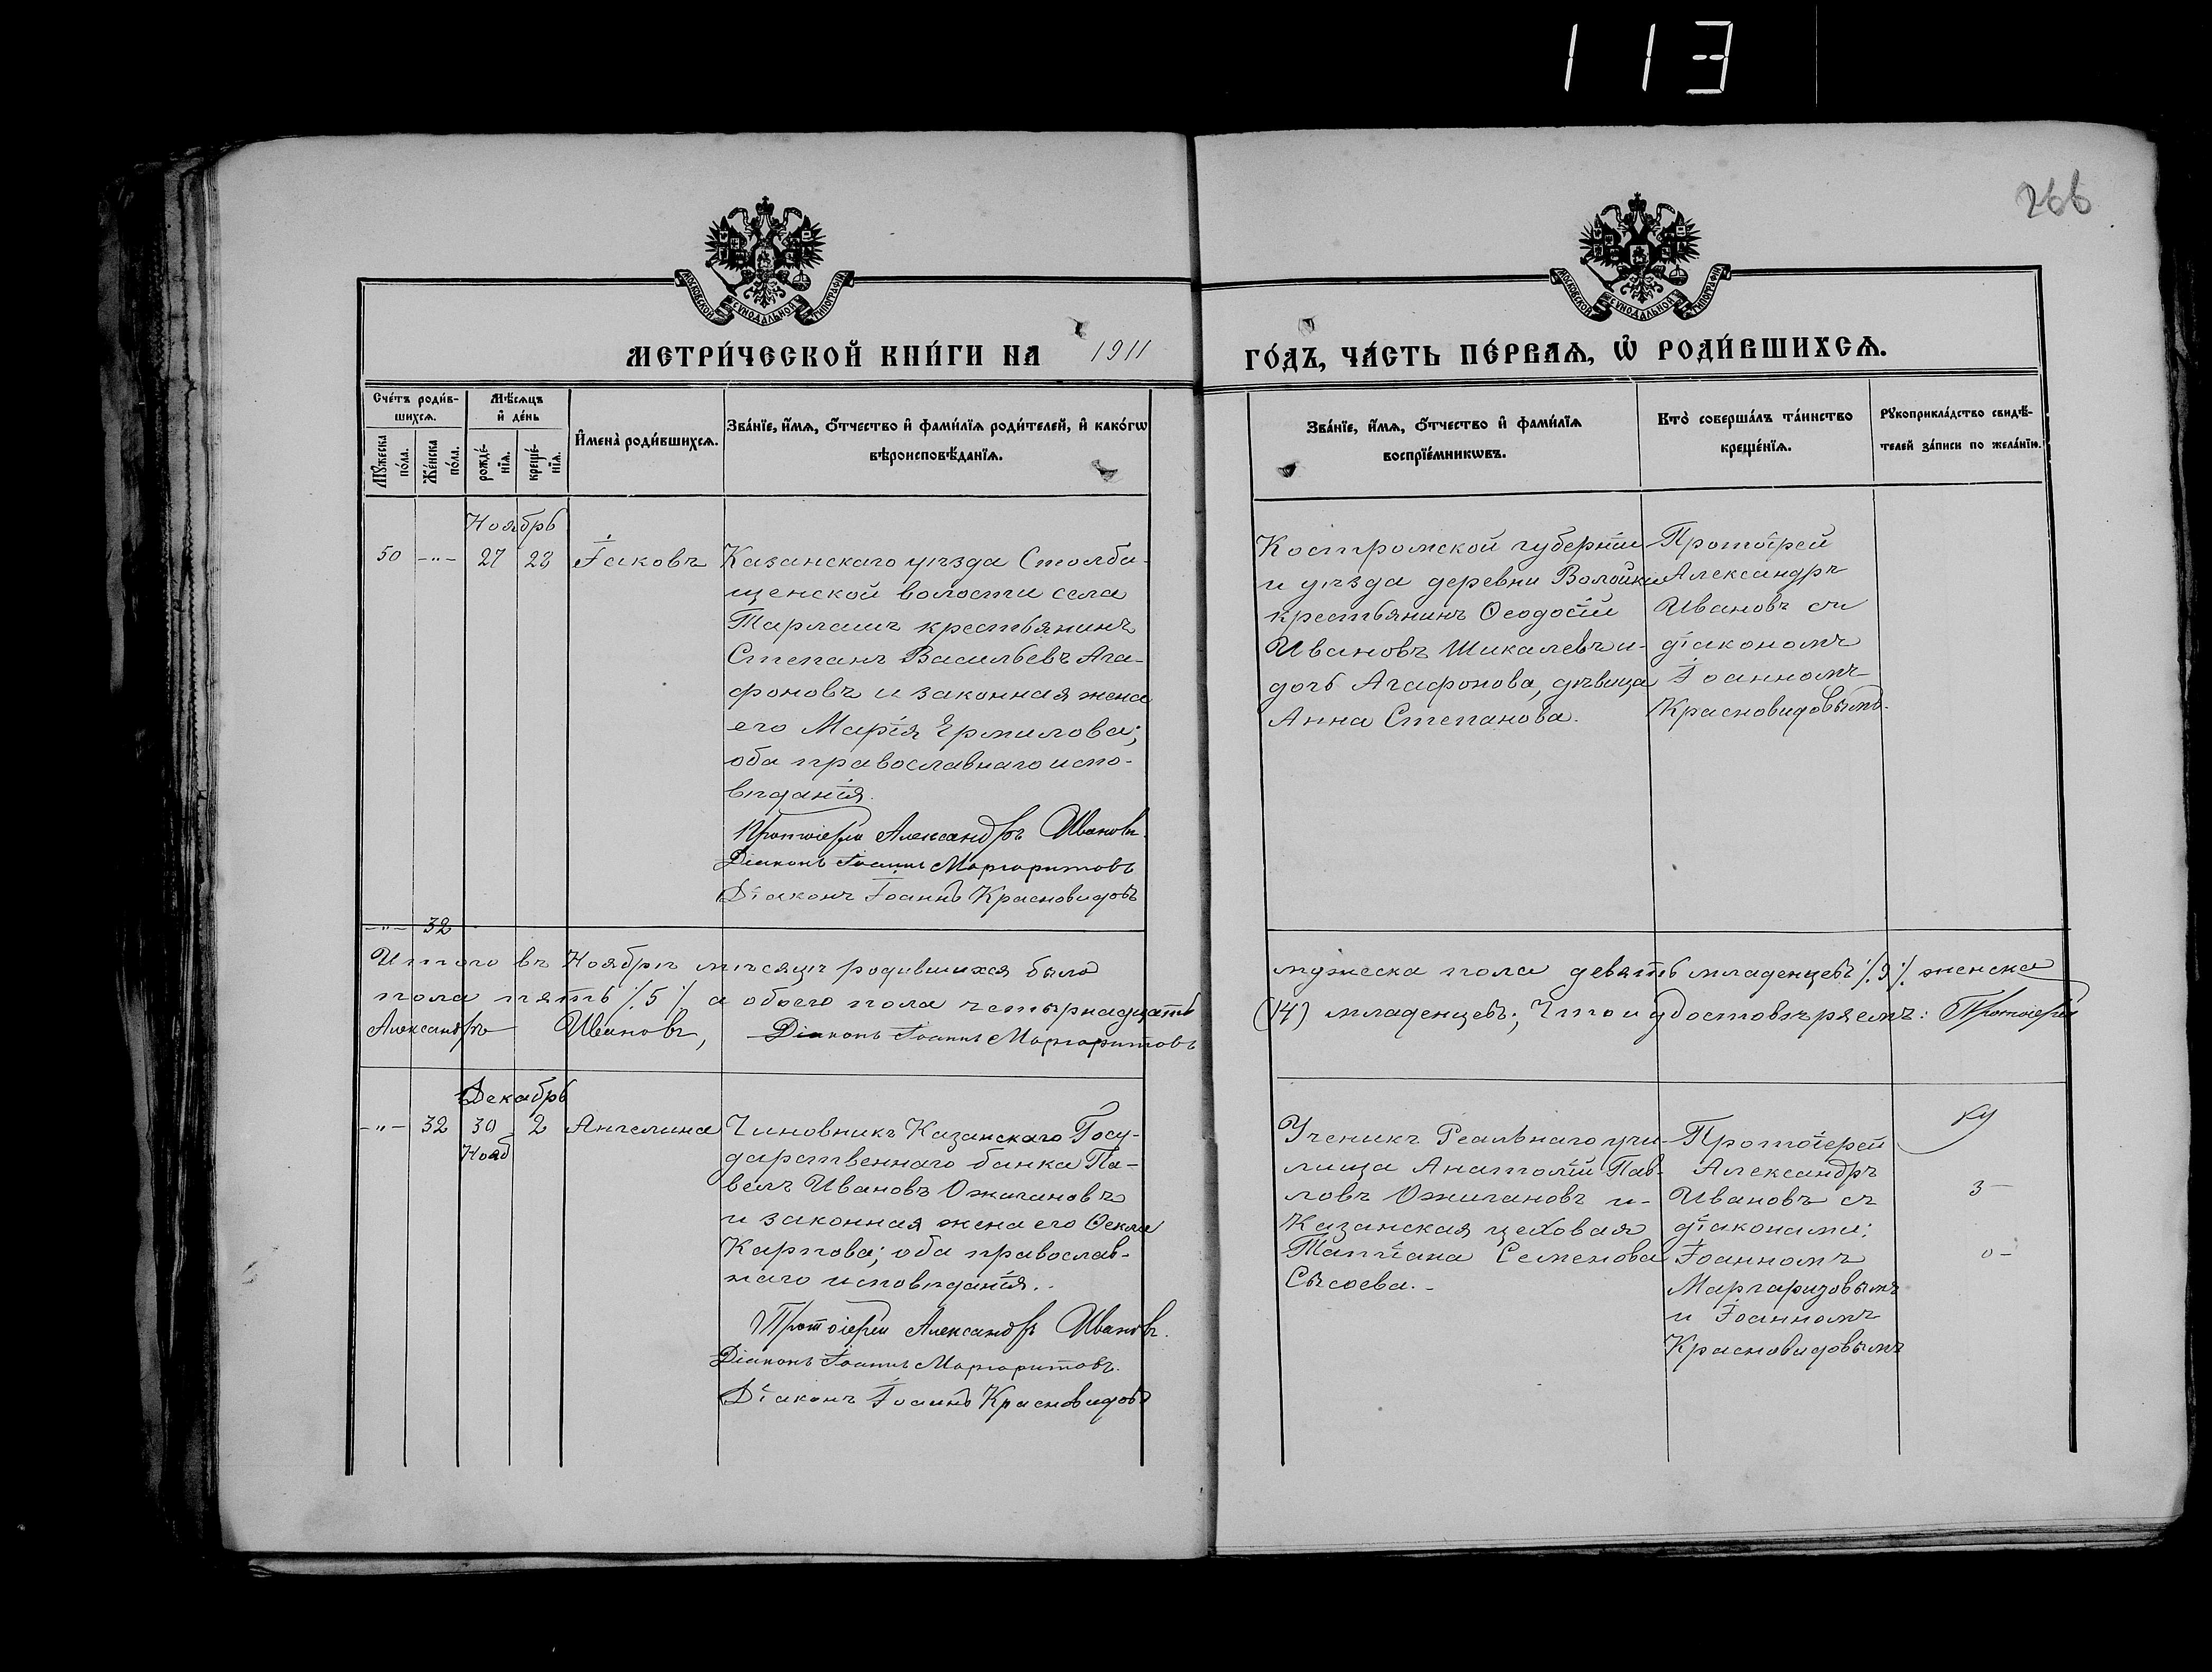 113
266
МОСКОВСКОЙ СѴНОДАЛЬНОЙ ТИПОГРАФІИ
МОСКОВСКОЙ СѴНОДАЛЬНОЙ ТИПОГРАФІИ
МЕТРИ́ЧЕСКОЙ КНИ́ГИ НА 1911 ГО́ДЪ, ЧА́СТЬ ПЕ́РВАѦ, Ѽ РОДИ́ВШИХСѦ.
Сче́тъ роди́в-
шихсѧ.
Мꙋ́жеска по́ла.
Же́нска по́ла.
Мѣ́сѧцъ
и҆ де́нь
рожде́-
нїѧ.
креще́-
нїѧ.
И҆мена̀ роди́вшихсѧ.
Зва́нїе, и҆́мѧ, ѻ҆́тчество и҆ фами́лїѧ роди́телей, и҆ како́гѡ
вѣроисповѣ́данїѧ.
Зва́нїе, и҆́мѧ, ѻ҆́тчество и҆ фами́лїѧ
воспрїе́мникѡвъ.
Кто̀ соверша́лъ та́инство
креще́нїѧ.
Рꙋкоприкла́дство свидѣ́-
телей за́писи по жела́нїю.
Ноябрь
50 -"- 27 28 Іаковъ
Казанскаго уѣзда Столби-
щенской волости села
Тарлаши крестьянинъ
Степанъ Васильевъ Ага-
фоновъ и законная жена
его Марія Ермилова;
оба православнаго испо-
вѣданія.
Протоіерей Александръ Ивановъ.
Діаконъ Іоаннъ Маргаритовъ
Діаконъ Іоаннъ Красновидовъ
Костромской губерніи
и уѣзда деревни Волойки
крестьянинъ Ѳеодосій
Ивановъ Шикалевъ и-
дочь Агафонова, дѣвица
Анна Степанова.
Протоіерей
Александръ
Ивановъ съ
діакономъ
Іоанномъ
Красновидовымъ.
-"- 32
Итого въ Ноябрѣ мѣсяцѣ родившихся было мужеска пола девять младенцевъ /.9./. женска
пола пять /.5./. а обоего пола четырнадцать (14) младенцевъ; Что и удостовѣряемъ: Протоіерей
Александръ Ивановъ, Діаконъ Іоаннъ Маргаритовъ
Декабрь
-"- 32 30 2 Ангелина
Нояб
Чиновникъ Казанскаго Госу-
дарственнаго банка Па-
велъ Ивановъ Ожигановъ
и законная жена его Ѳекла
Карпова; оба православ-
наго исповѣданія.
Протоіерей Александръ Ивановъ.
Діаконъ Іоаннъ Маргаритовъ.
Діаконъ Іоаннъ Красновидовъ
Ученикъ Реальнаго учи-
лища Анатолій Пав-
ловъ Ожигановъ и-
Казанская цеховая
Татіана Семенова
Сысоева.-
Протоіерей
Александръ
Ивановъ съ
діаконами:
Іоанномъ
Маргаризовымъ
и Іоанномъ
Красновидовымъ
3-
0-